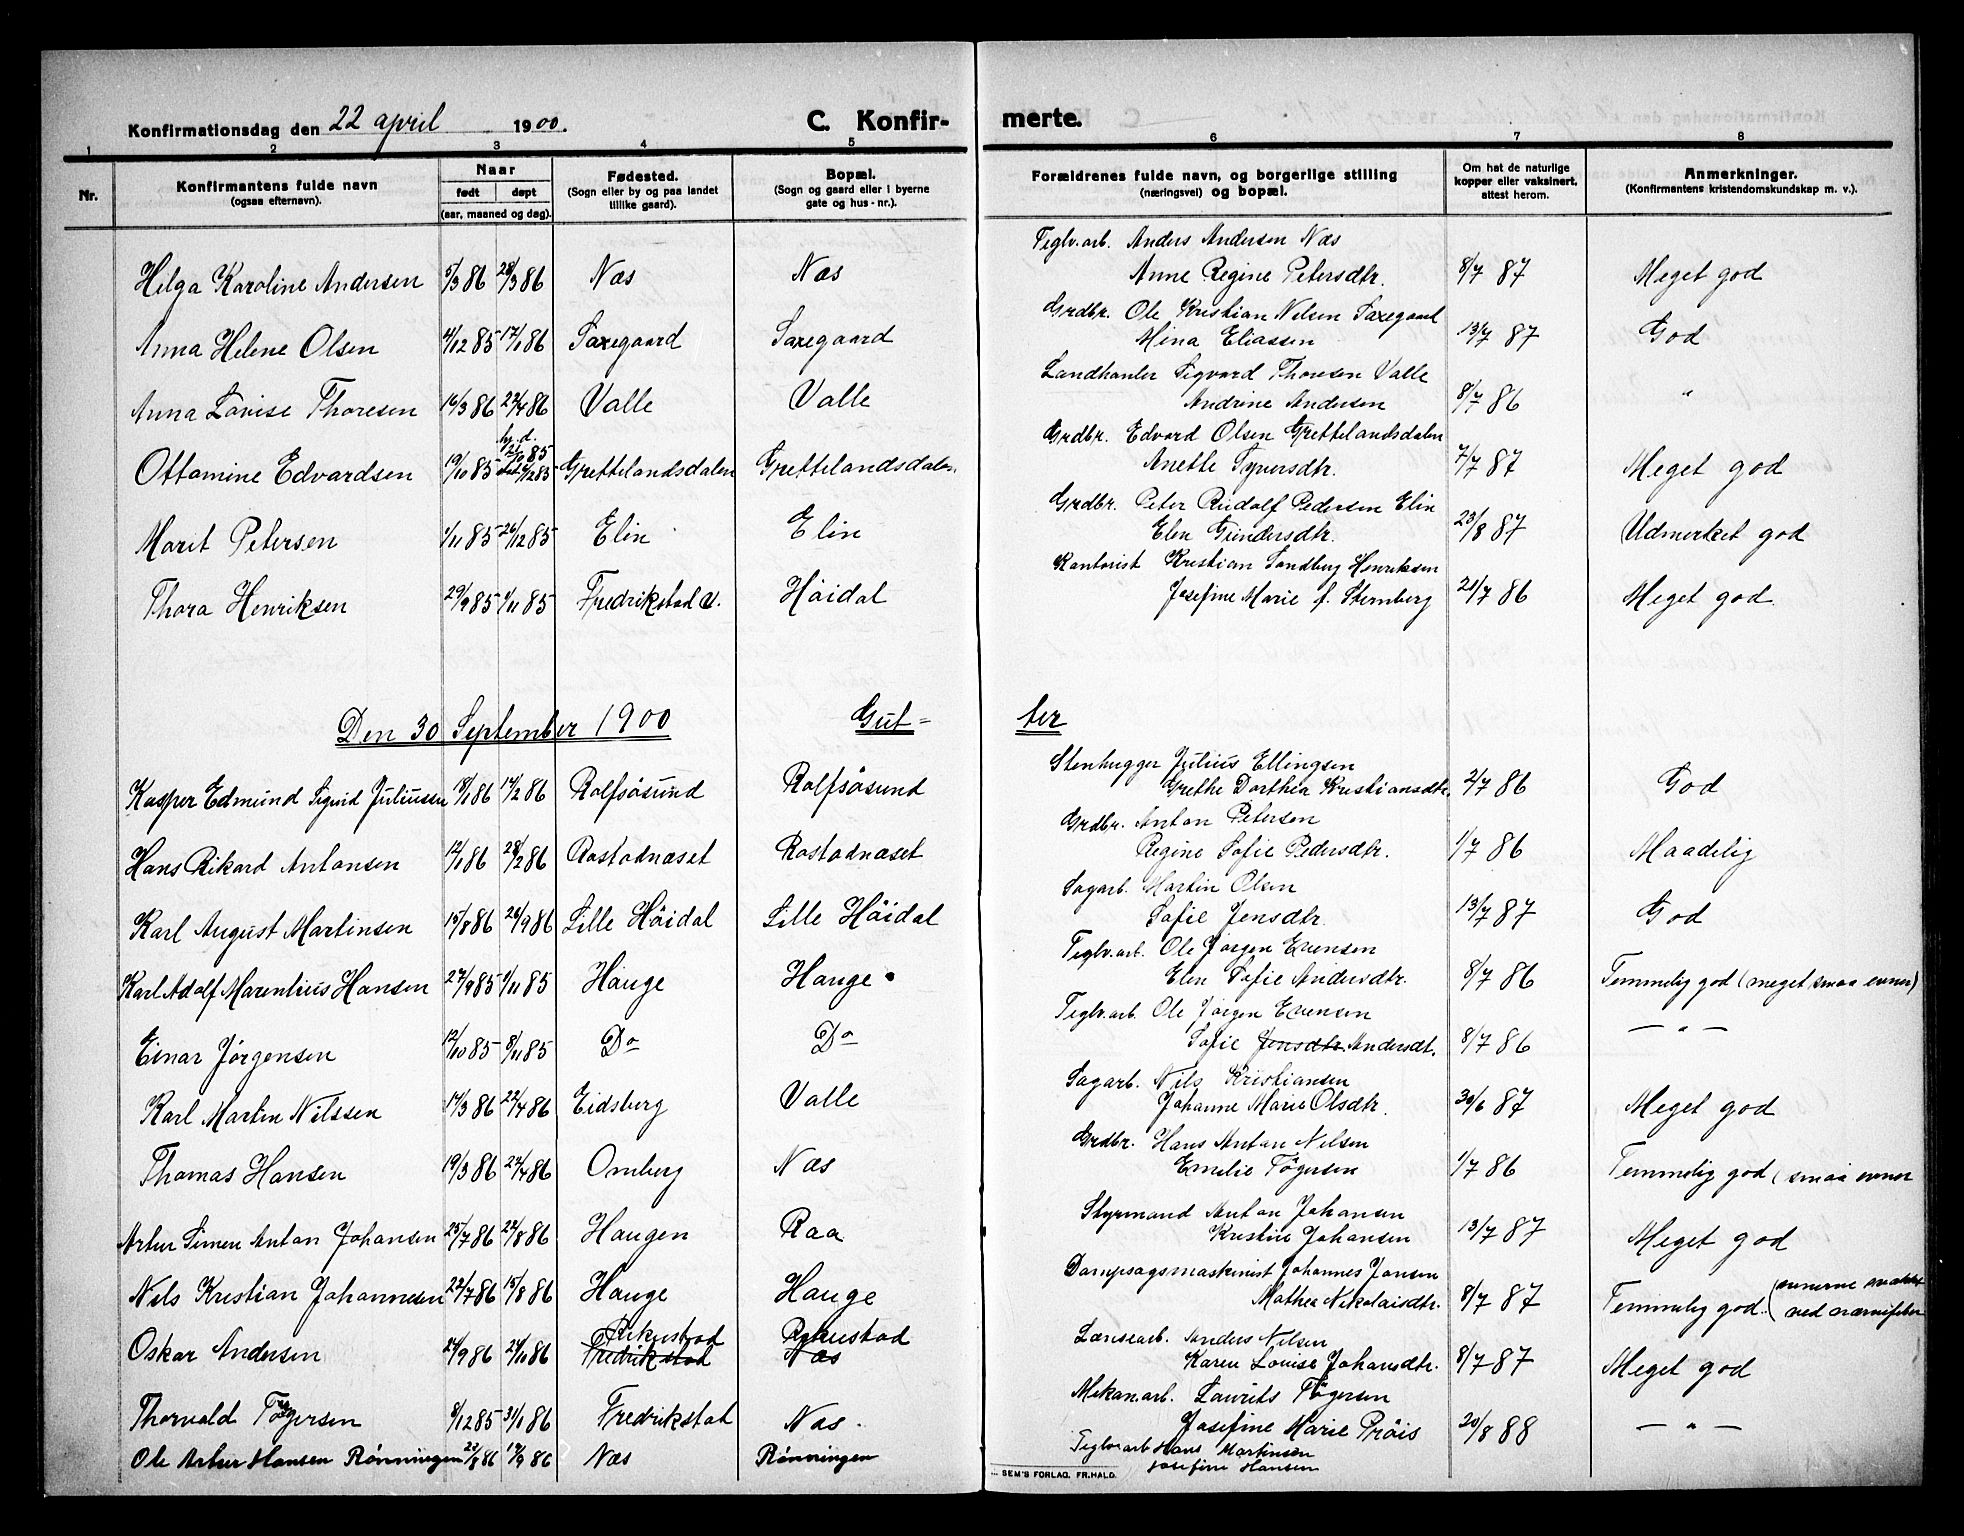 Konfirmationsdag den 22 april 1900. C. Konfir- merte.
1 2 3 4 5 6 7 8
Nr. Konfirmantens fulde navn (ogsaa efternavn). Naar født døpt (aar, maaned og dag). Fødested. (Sogn eller by og paa landet tillike gaard). Bopæl. (Sogn og gaard eller i byerne gate og hus-nr.). Forældrenes fulde navn, og borgerlige stilling (næringsvei) og bopæl. Om hat de naturlige kopper eller vaksinert, attest herom. Anmerkninger. (Konfirmantens kristendomskundskap m. v.).
Teglv.arb. Anders Andersen Næs
Helga Karoline Andersen 5/3 86 28/3 86 Næs Næs Anne Regine Petersdtr. 8/7 87 Meget god
Grdbr. Ole Kristian Nilsen Saxegaard
Anna Helene Olsen 4/12 85 17/1 86 Saxegaard Saxegaard Mina Eliassen 13/7 87 God
Landhanler Sigvard Thoresen Valle
Anna Lovise Thoresen 16/3 86 22/4 86 Valle Valle Andrine Andersen 8/7 86 "
Grdbr. Edvard Olsen Grettelandsdalen
Ottomine Edvardsen 19/10 85 hj. d. Grettelandsdalen Grettelandsdalen Anette Syversdtr. 7/7 87 Meget god
Grdbr. Peter Rudolf Pedersen Elin
Marit Petersen 1/11 85 26/12 85 Elin Elin Elen Gundersdtr. 23/8 87 Udmerket god
Kontorist Kristian Sandberg Henriksen
Thora Henriksen 29/9 85 1/11 85 Fredrikstad V. Høidal Josefine Marie f. Sternberg 21/7 86 Meget god.
Den 30 September 1900 Gut- ter
Stenhugger Julius Ellingsen
Kasper Edmund Sigvid Juliussen 18/1 86 14/2 86 Rolfsøsund Rolfsøsund Grethe Dorthea Kristiansdtr. 2/7 86 God
Grdbr. Anton Petersen
Hans Rikard Antonsen 12/1 86 28/2 86 Rostadnæset Rostadnæset Regine Sofie Pedersdtr. 1/7 86 Maadelig
Sagarb. Martin Olsen
Karl August Martinsen 15/8 86 26/9 86 Lille Høidal Lille Høidal Sofie Jensdtr. 13/7 87 God
Teglv.arb. Ole Jørgen Evensen
Karl Adolf Marentius Hansen 27/9 85 1/11 85 Hauge Hauge Elen Sofie Andersdtr. 8/7 86 Temmelig god (meget smaa evner)
Teglv.arb. Ole Jørgen Evensen
Einar Jørgensen 12/10 85 8/11 85 Do Do Sofie Jensdtr Andersdt. 8/7 86 — " —
Sagarb. Nils Kristiansen
Karl Martin Nilssen 14/3 86 22/4 86 Eidsberg Valle Johanne Marie Olsdtr. 30/6 87 Meget god
Grdbr. Hans Anton Nilsen
Thomas Hansen 19/3 86 22/4 86 Omberg Næs Emelie Tøgersen 1/7 86 Temmelig god (smaa evner
Styrmand Anton Johansen
Artur Simen Anton Johansen 25/7 86 22/8 86 Haugen Raa Kristine Johansen 13/7 87 Meget god
Dampsagsmaskinist Johannes Jansen
Nils Kristian Johannesen 22/7 86 15/8 86 Hauge Hauge Mathea Nikolaisdtr. 8/7 87 Temmelig god. (evnerne svækket ved nærvefeber
Rekustad Rekustad Lænsearb. Anders Nilsen
Oskar Andersen 24/9 86 24/10 86 Fredrikstad Næs Karen Lovise Johansdtr. 8/7 87 Meget god
Mekan.arb. Laurits Tøgersen
Thorvald Tøgersen 8/12 85 31/1 86 Fredrikstad Næs. Josefine Marie Prøis 20/8 88 — " —
Teglv.arb Hans Martinsen
Ole Artur Hansen Rønningen 22/8 86 19/9 86 Næs Rønningen Josefine Hansen
SEM'S FORLAG, FR.HALD.